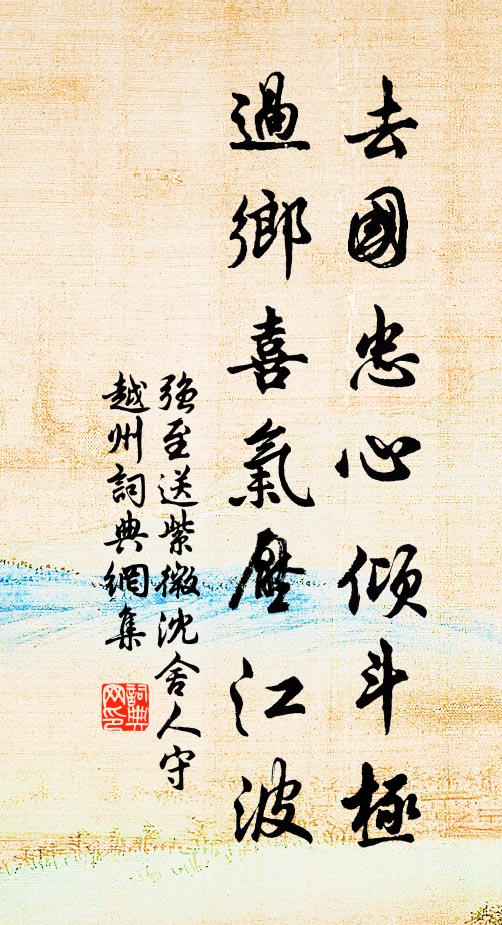 去國忠心傾斗極
過鄉喜氣壓江波
強至送紫微沈舍人守
越州詞典網集
詞典
网印